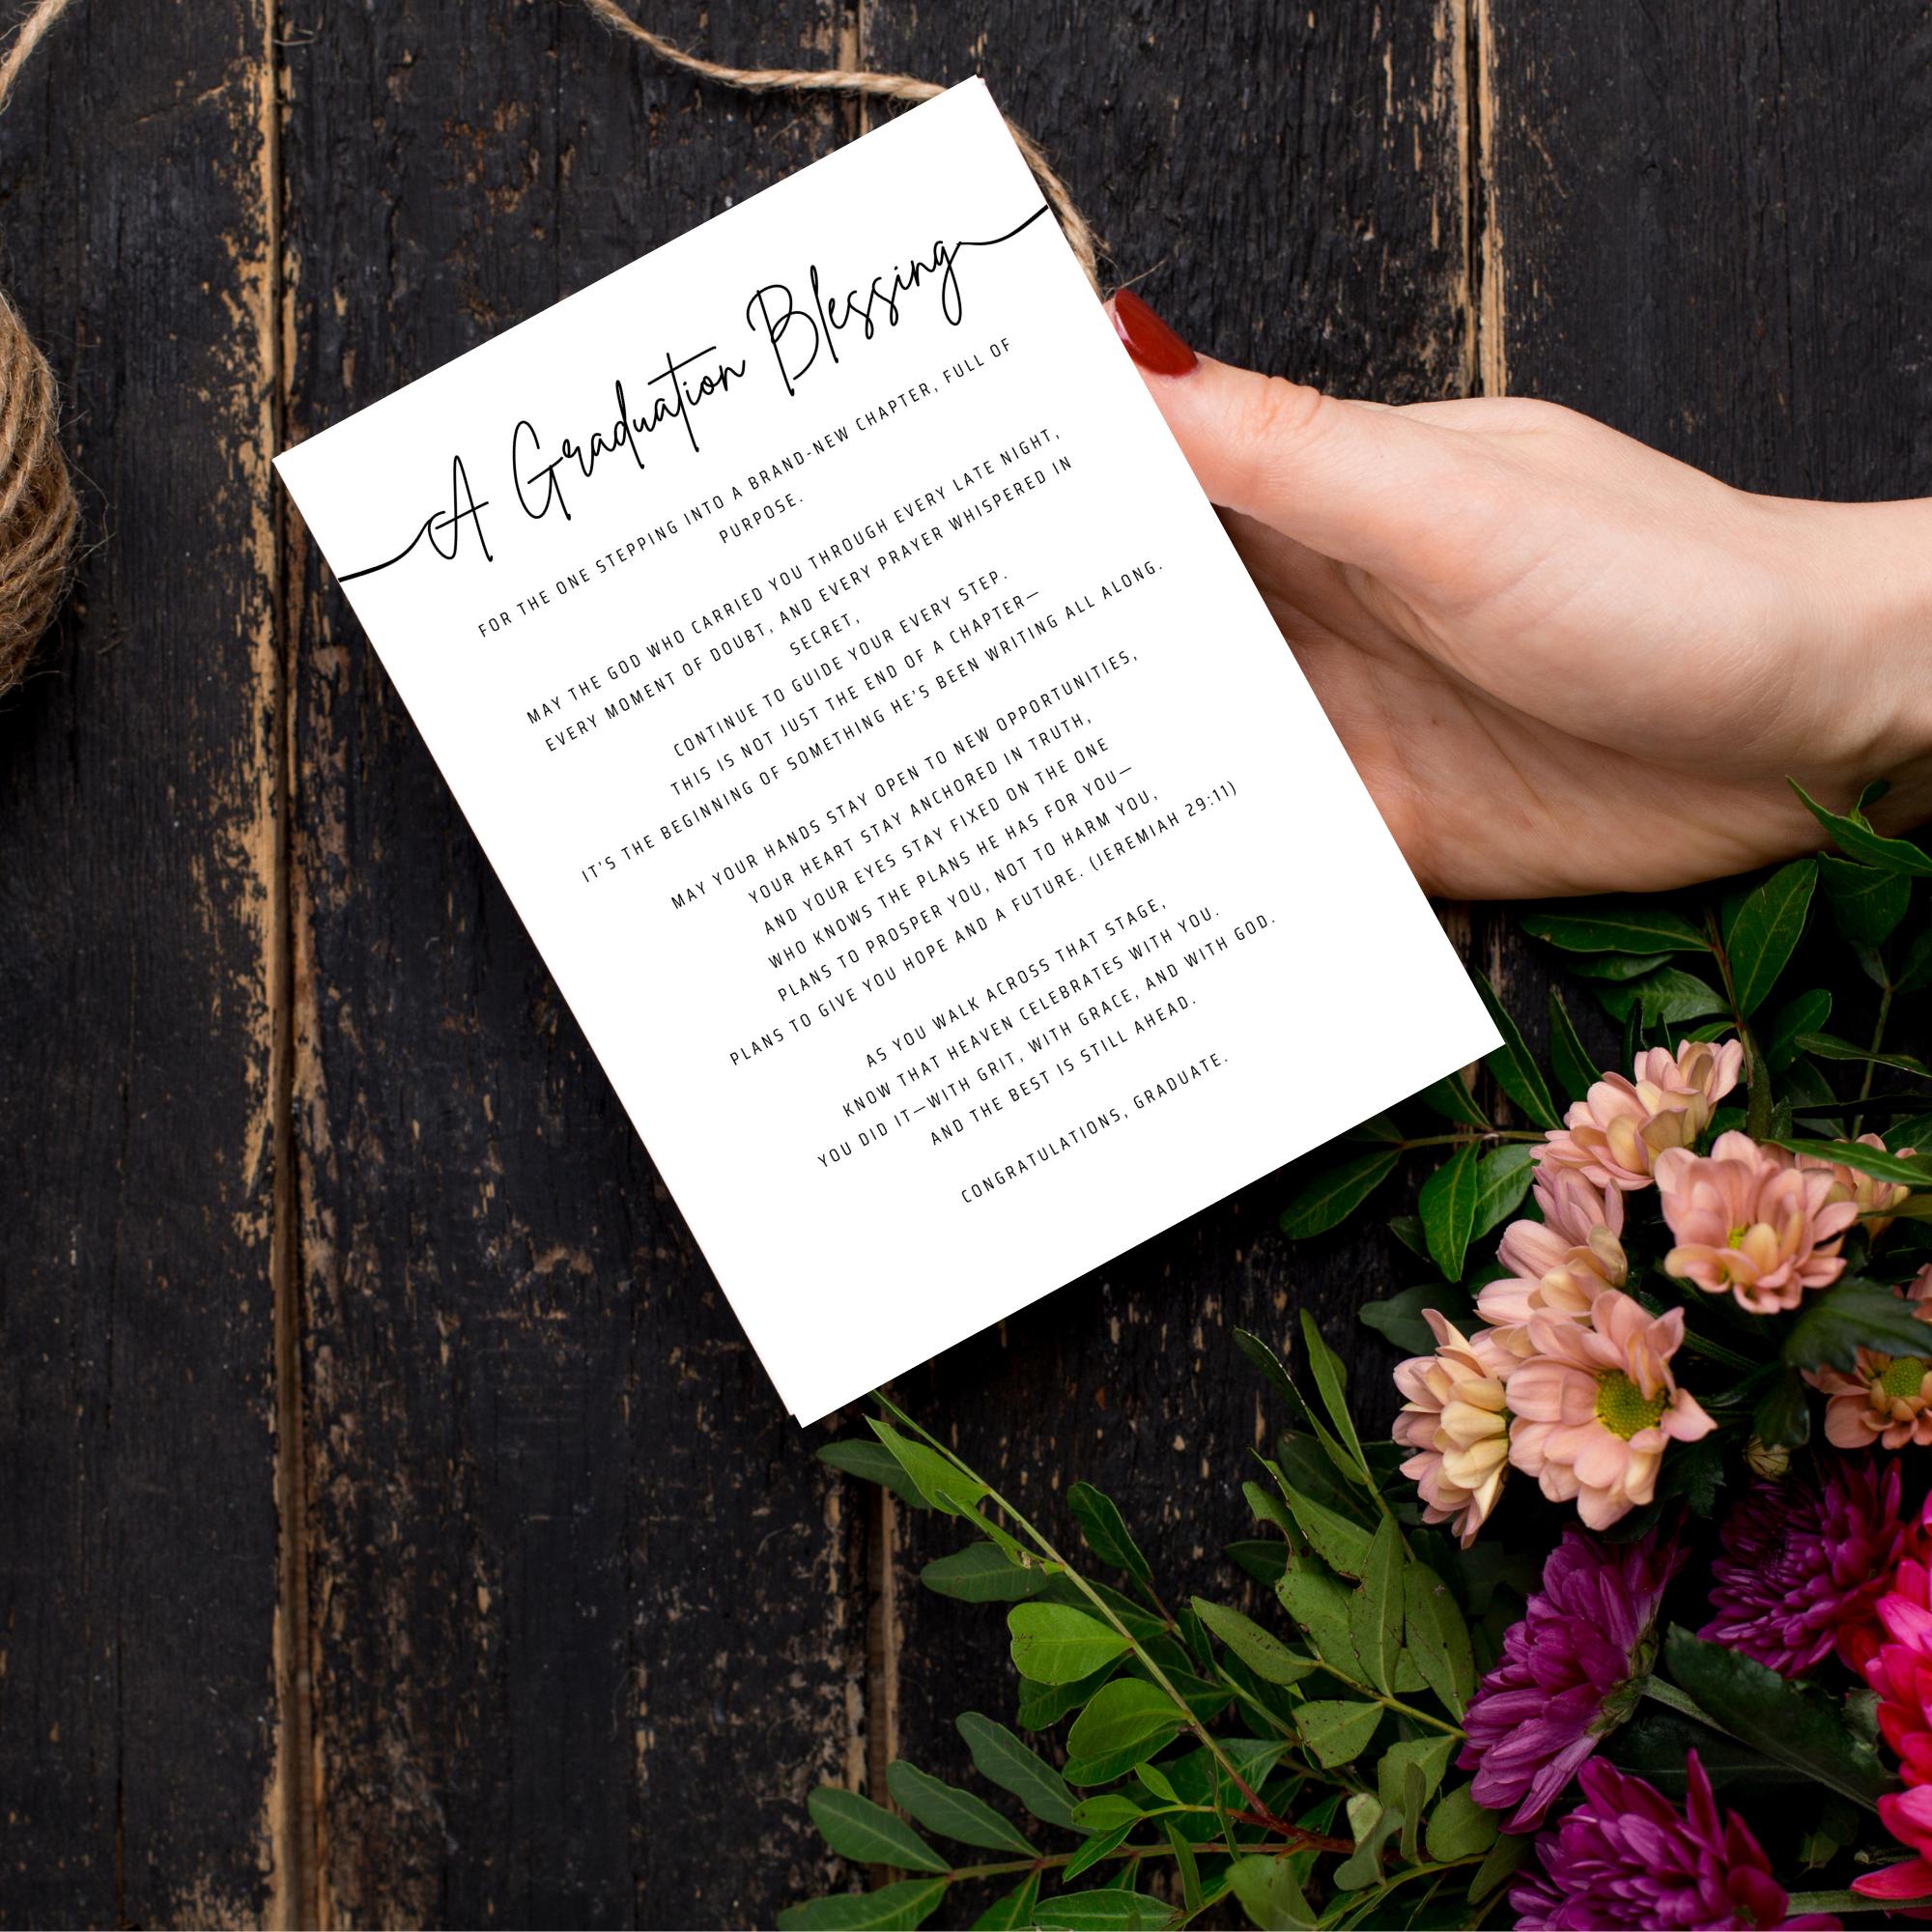 A Graduation Blessing
FOR THE ONE STEPPING INTO A BRAND-NEW CHAPTER, FULL OF
PURPOSE.
MAY THE GOD WHO CARRIED YOU THROUGH EVERY LATE NIGHT,
EVERY MOMENT OF DOUBT, AND EVERY PRAYER WHISPERED IN
SECRET,
CONTINUE TO GUIDE YOUR EVERY STEP.
THIS IS NOT JUST THE END OF A CHAPTER—
IT'S THE BEGINNING OF SOMETHING HE'S BEEN WRITING ALL ALONG.
MAY YOUR HANDS STAY OPEN TO NEW OPPORTUNITIES,
YOUR HEART STAY ANCHORED IN TRUTH,
AND YOUR EYES STAY FIXED ON THE ONE
WHO KNOWS THE PLANS HE HAS FOR YOU—
PLANS TO PROSPER YOU, NOT TO HARM YOU,
PLANS TO GIVE YOU HOPE AND A FUTURE. (JEREMIAH 29:11)
AS YOU WALK ACROSS THAT STAGE,
KNOW THAT HEAVEN CELEBRATES WITH YOU.
YOU DID IT—WITH GRIT, WITH GRACE, AND WITH GOD.
AND THE BEST IS STILL AHEAD.
CONGRATULATIONS, GRADUATE.